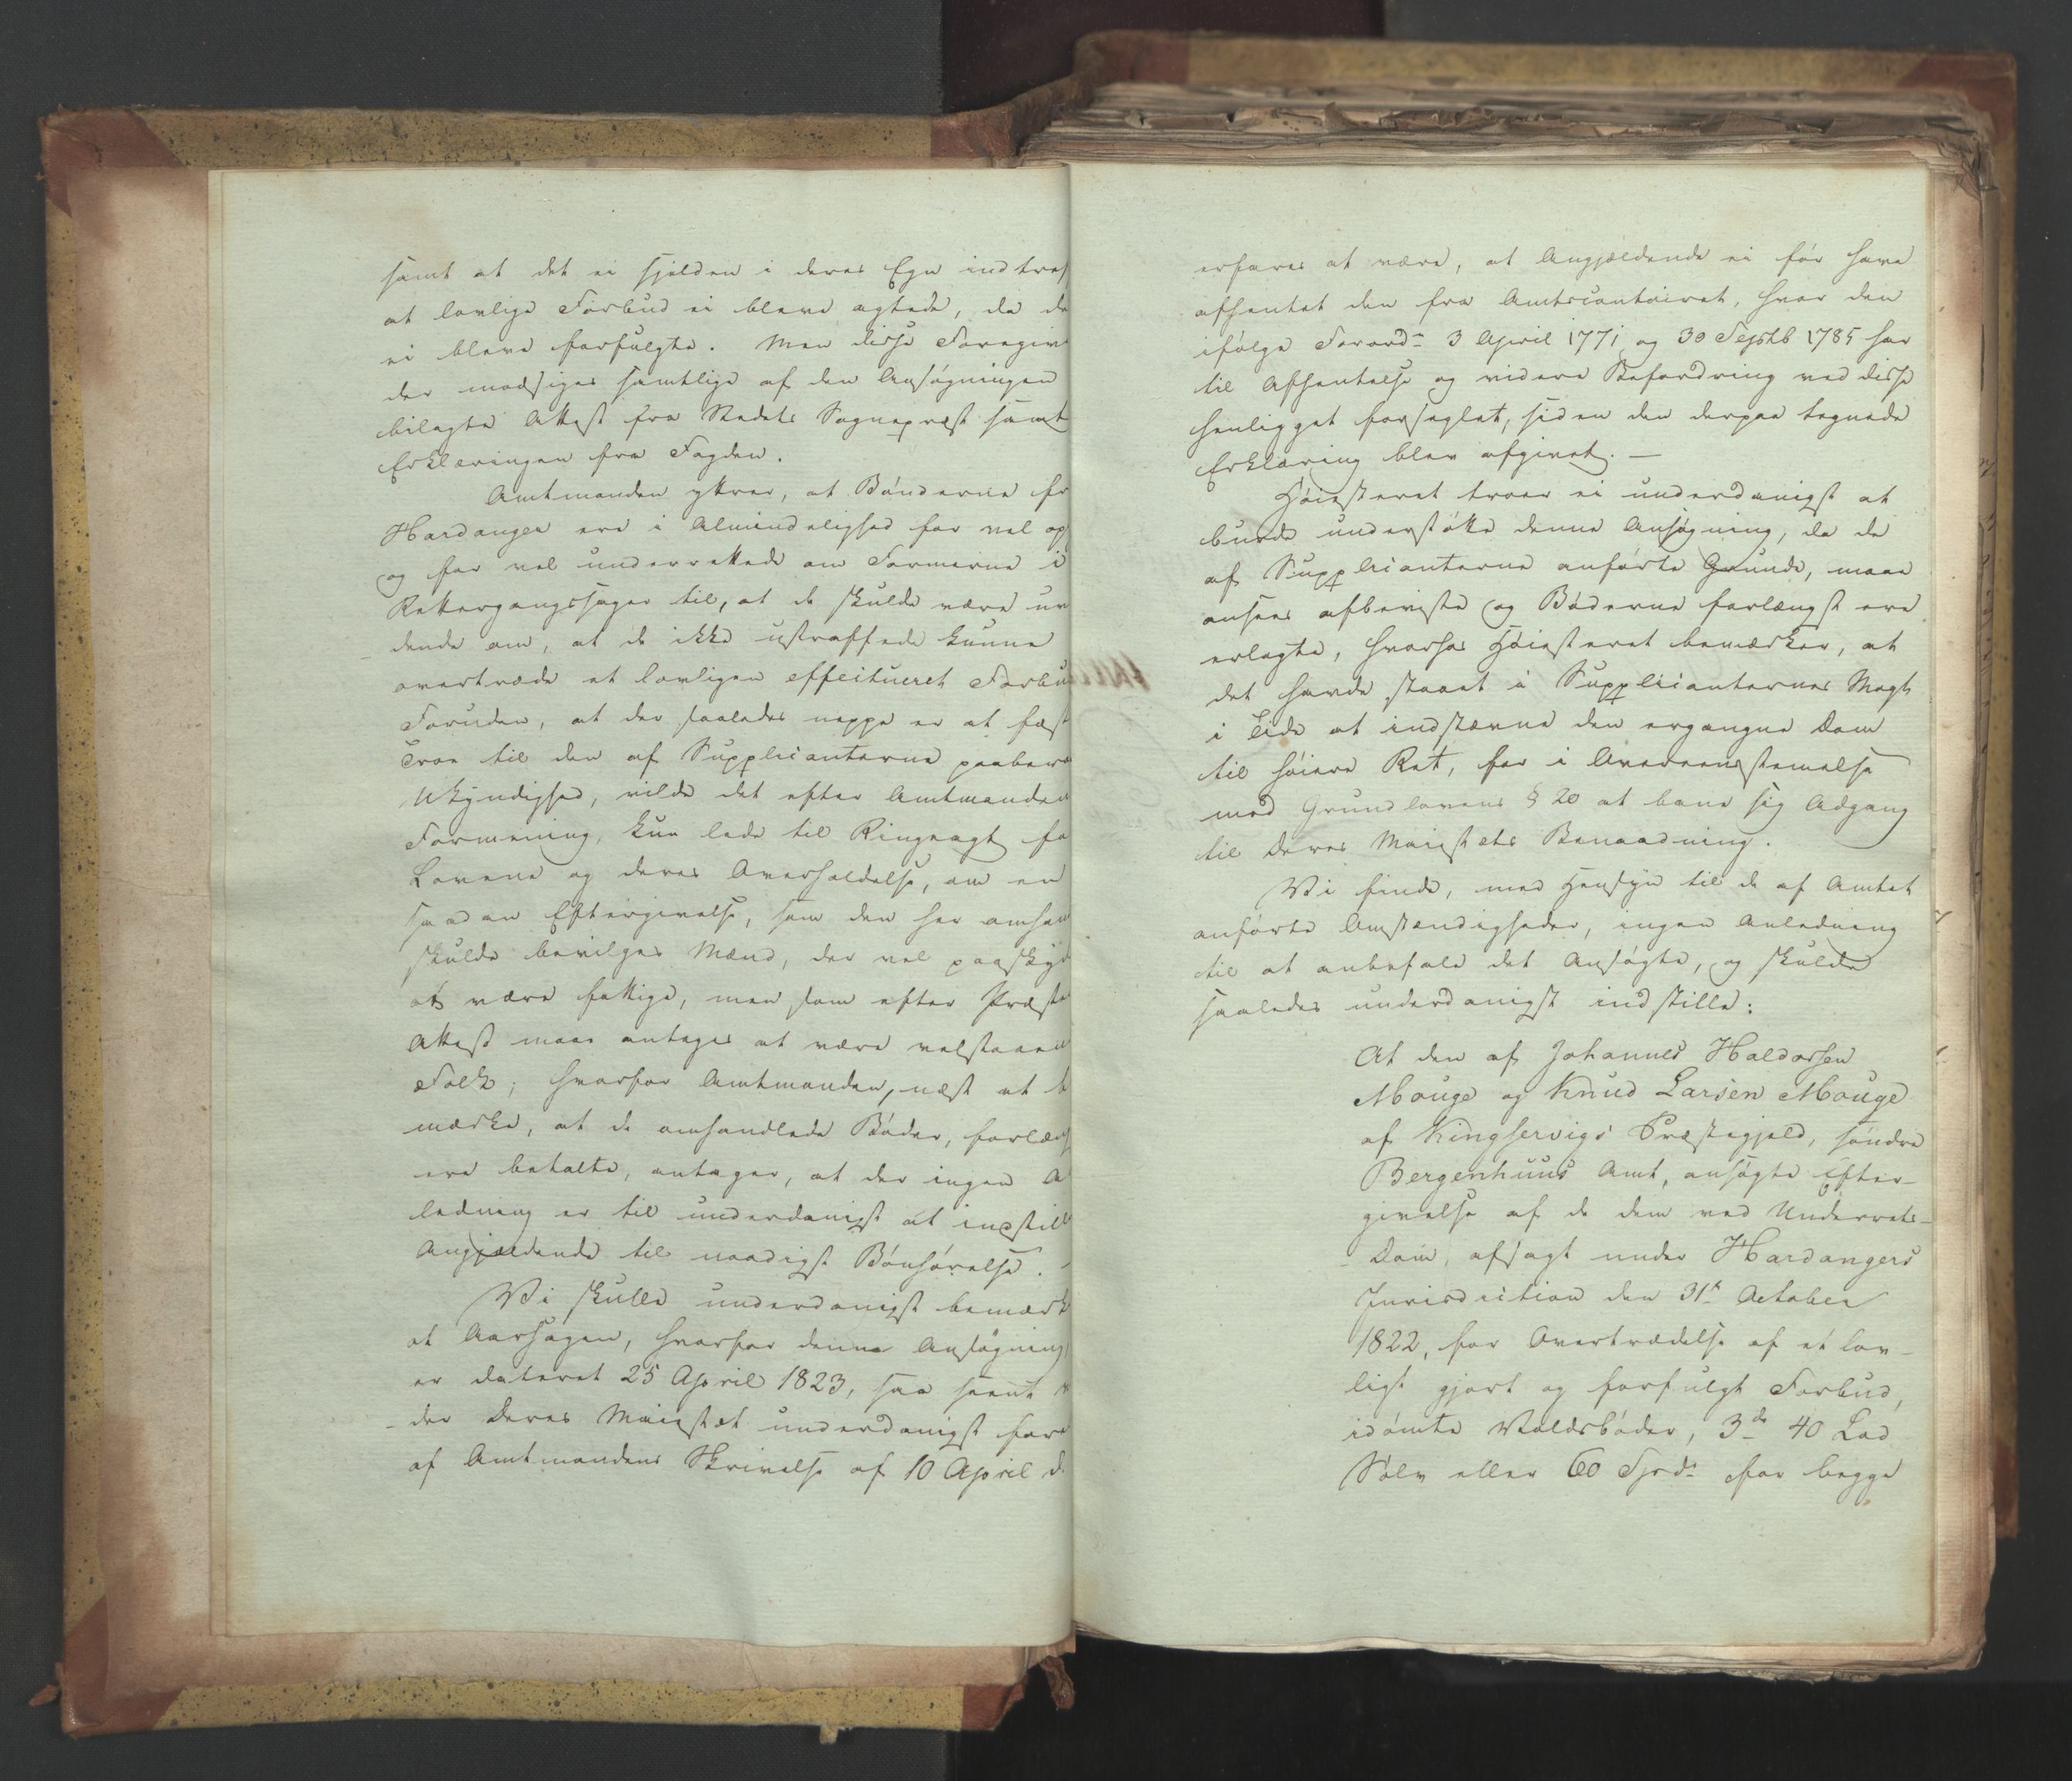 samt at det ei sjelden i deres Egn indtraf
at lovlige Forbud ei bleve agtede, da de
ei bleve forfulgte. Men disse Foregiven
der modsiges samtlige af den Ansøgningen
bilagte Attest fra Stedets Sognepræst samt
Erklæringen fra Fogden.
Amtmanden yttrer, at Bønderne fr
Hardanger ere i Almindelighed for vel op
og for vel underrettede om Formerne i
Rettergangssager til, at de skulde være uv
dende om, at de ikke ustraffede kunne
overtræde et lovligen effectueret Forbu
Foruden, at der saaledes neppe er at fæst
Troe til den af Supplicanterne paabero
Ukyndighed, vilde det efter Amtmandens
Formening, kun lede til Ringeagt fo
Lovene og deres Overholdelse, om en
saadan Eftergivelse, som den her omhan
skulde bevilges Mænd, der vel paaskyde
at være fattige, men som efter Præste
Attest maae antages at være velstaaen
Folk; hvorfor Amtmanden, næst at b
mærke, at de omhandlede Bøder, forlængst
ere betalte, antager, at der ingen A
ledning er til underdanigst at indstill
Angjældende til naadigst Bønhørelse. -
Vi skulle underdanigst bemærk
at Aarsagen, hvorfor denne Ansøgning
er dateret 25 April 1823, saa seent
der Deres Majestæt underdanigst fore
af Amtmandens Skrivelse af 10 April d.
erfares at være, at Angjældende ei før have
afhentet den fra Amtscontoiret, hvor den
ifølge Forord: 3 April 1771 og 30 Septb 1785 har
til Afhentelse og videre Befordring ved disse
henligget forseglet, siden den derpaa tegnede
Erklæring blev afgivet. —
Høiesteret troer ei underdanigst at
burde understøtte denne Ansøgning, da de
af Supplicanterne anførte Grunde, maae
ansees afbeviste og Bøderne forlængst ere
erlagte, hvorhos Høiesteret bemærker, at
det havde staaet i Supplicanternes Magt
i Tide at indstævne den ergangne Dom
til høiere Ret, for i Overeensstemelse
med Grundlovens § 20 at bane sig Adgang
til Deres Majestæts Benaadning.
Vi finde, med Hensyn til de af Amtet
anførte Omstændigheder, ingen Anledning
til at anbefale det Ansøgte, og skulde
saaledes underdanigst indstille:
At den af Johannes Haldorsen
Mouge og Knud Larsen Mouge
af Kingservigs Præstegjeld, søndre
Bergenhuus Amt, ansøgte Efter-
givelse af de dem ved Underrets-
Dom, afsagt under Hardangers
Jurisdiction den 31te October
1822, for Overtrædelse af et lov-
ligt gjort og forfulgt Forbud,
idømte Voldsbøder, 3de 40 Lod
Sølv eller 60 Spd: for begge